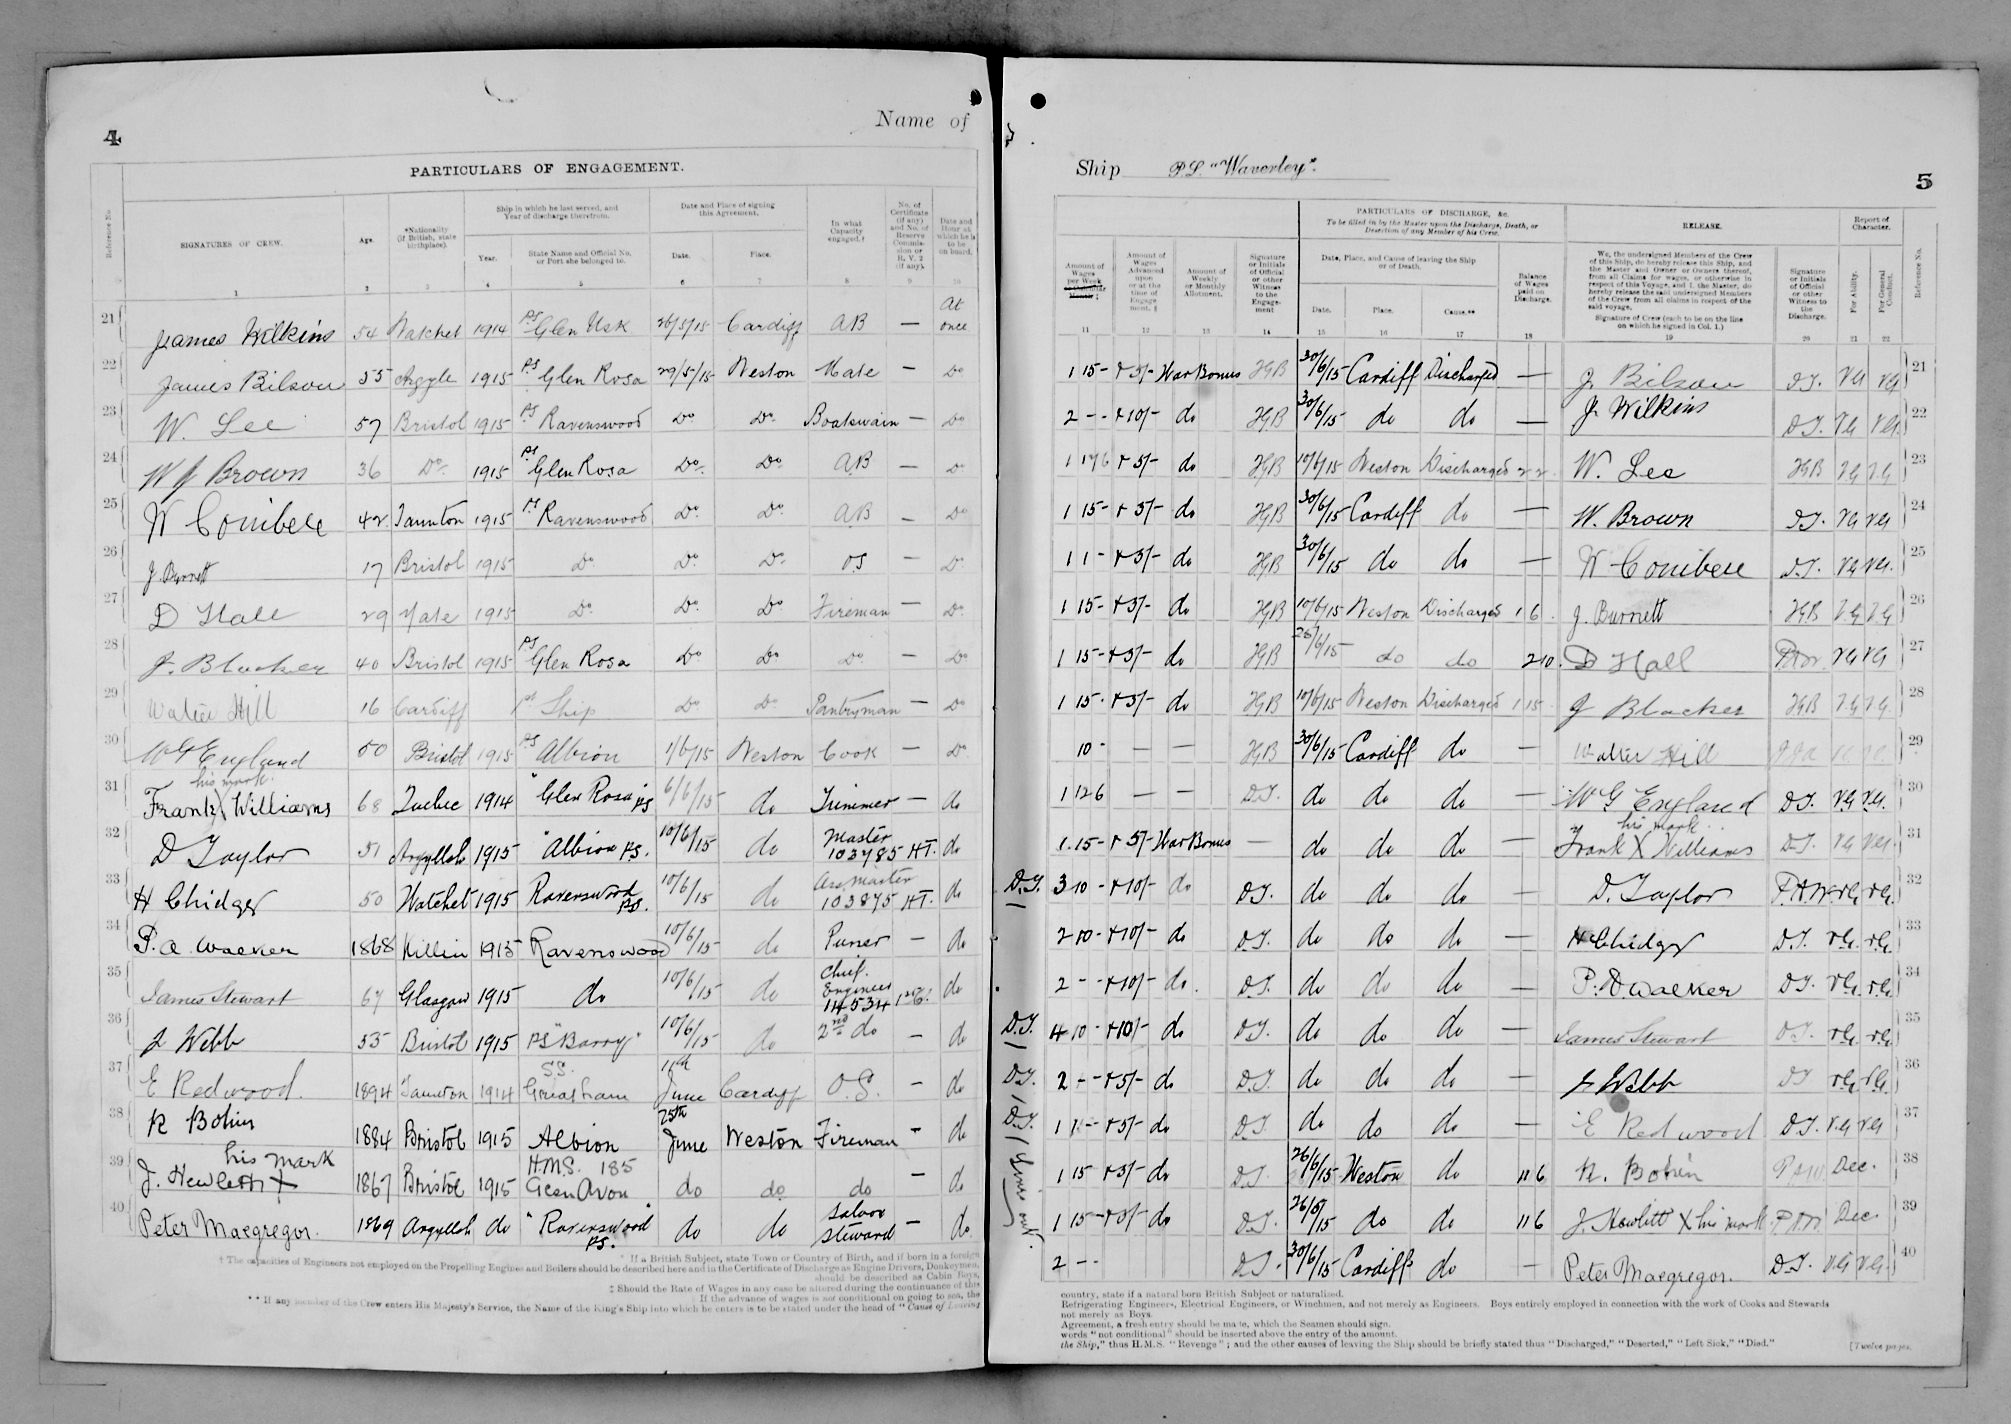 4
Name of
PARTICULARS OF ENGAGEMENT.
Reference No.
SIGNATURES OF CREW.
Age.
*Nationality (if British, state birthplace).
Ship in which he last served, and Year of discharge therefrom.
Year.
State Name and Official No. or Port she belonged to.
Date and Place of signing this Agreement.
Date.
Place.
In what Capacity engaged.†
No. of Certificate (if any) and No. of Reserve Commission or R.V. 2 (if any).
Date and Hour at which he is to be on board.
1 2 3 4 5 6 7 8 9 10
21 James Wilkins 54 Watchet 1914 PS Glen Usk 26/5/15 Cardiff AB — At once
22 James Bilson 55 Argyle 1915 PS Glen Rosa 29/5/15 Weston Mate — Do
23 W. Lee 57 Bristol 1915 PS Ravenswood Do Do Boatswain — Do
24 W J Brown 36 Do 1915 PS Glen Rosa Do Do AB — Do
25 W Conibere 42 Taunton 1915 PS Ravenswood Do Do AB — Do
26 J. Burnett 17 Bristol 1915 Do Do Do OS — Do
27 D Hall 29 Yate 1915 Do Do Do Fireman — Do
28 J. Blacker 40 Bristol 1915 PS Glen Rosa Do Do Do — Do
29 Walter Hill 16 Cardiff 1st Ship Do Do Pantryman — Do
30 W G England 50 Bristol 1915 PS Albion 1/6/15 Weston Cook — Do
31 his mark
Frank X Williams 68 Quebec 1914 "Glen Rosa" PS 6/6/15 do Trimmer — do
32 D Taylor 51 Argyllsh 1915 "Albion PS. 10/6/15 do Master 103785 HT. do
33 H Chidgey 50 Watchet 1915 Ravenswood PS. 10/6/15 do Ass Master 103875 HT. do
34 P. A. Walker 1868 Killin 1915 Ravenswood 10/6/15 do Purser — do
35 James Stewart 67 Glasgow 1915 do 10/6/15 do Chief Engineer 14534 do
36 J Webb 55 Bristol 1915 PS "Barry" 10/6/15 do 2nd do — do
37 E Redwood. 1894 Taunton 1914 S.S. Gresham 11th June Cardiff O.S. — do
38 R Bohin 1884 Bristol 1915 Albion 25th June Weston Fireman — do
39 his mark
J. Hewlett X 1867 Bristol 1915 H.M.S. 185 Glen Avon do do do — do
40 Peter Macgregor. 1869 Argyllsh do "Ravenswood" PS. do do Saloon Steward — do
* If a British Subject, state Town or Country of Birth, and if born in a foreign
† The capacities of Engineers not employed on the Propelling Engines and Boilers should be described here and in the Certificate of Discharge as Engine Drivers, Donkeymen,
should be described as Cabin Boys,
‡ Should the Rate of Wages in any case be altered during the continuance of this
If the advance of wages is not conditional on going to sea, the
** If any member of the Crew enters His Majesty's Service, the Name of the King's Ship into which he enters is to be stated under the head of "Cause of Leaving
Ship P.S. "Waverley".
5
Amount of Wages per Week
Amount of Wages Advanced upon or at the time of Engagement. §
Amount of Weekly or Monthly Allotment.
Signature or Initials of Official or other Witness to the Engagement
PARTICULARS OF DISCHARGE, &c.
To be filled in by the Master upon the Discharge, Death, or Desertion of any Member of his Crew.
Date, Place, and Cause of leaving the Ship or of Death.
Date.
Place.
Cause.**
Balance of Wages paid on Discharge.
RELEASE.
We, the undersigned Members of the Crew of this Ship, do hereby release this Ship, and the Master and Owner or Owners thereof, from all Claims for wages, or otherwise in respect of this Voyage, and I, the Master, do hereby release the said undersigned Members of the Crew from all claims in respect of the said voyage.
Signature of Crew (each to be on the line on which he signed in Col. 1.)
Signature or Initials of Official or other Witness to the Discharge.
Report of Character.
For Ability.
For General Conduct.
Reference No.
11 12 13 14 15 16 17 18 19 20 21 22
1 15 - + 5/- War Bonus HGB 30/6/15 Cardiff Discharged — J Bilson D.T. VG VG 21
2 - - + 10/- do HGB 30/6/15 do do — J Wilkins D.T. VG VG. 22
1 17 6 + 5/- do HGB 10/6/15 Weston Discharged 2 2 W. Lee HGB VG VG 23
1 15 - + 5/- do HGB 30/6/15 Cardiff do — W. Brown D.T. VG VG 24
1 1 - + 5/- do HGB 30/6/15 do do — W Conibere D.T. VG VG. 25
1 15 - + 5/- do HGB 10/6/15 Weston Discharged 1 6 J. Burnett HGB VG VG 26
1 15 - + 5/- do HGB do do 2 10 D Hall VG VG 27
1 15 - + 5/- do HGB 10/6/15 Weston Discharged 1 15 J Blacker HGB VG VG 28
10 - — — HGB 30/6/15 Cardiff do — Walter Hill 29
1 12 6 — — D.T. do do do — W G England D.T. VG VG. 30
his mark
1 15 - + 5/- War Bonus — do do do — Frank X Williams D.T. VG VG. 31
D.T. 3 10 - + 10/- do D.T. do do do — D. Taylor P.A.W. VG. VG. 32
2 10 - + 10/- do D.T. do do do — H Chidgey D.T. VG. VG. 33
2 - - + 10/- do. D.T. do do do — P. A Walker D.T. VG. VG. 34
D.T. 4 10 - + 10/- do D.T. do do do — James Stewart D.T. VG. VG. 35
D.T. 2 - - + 5/- do D.T. do do do — J Webb DT VG. VG. 36
D.T. 1 1 - + 5/- do D.T. do do do — E Redwood D.T. VG VG 37
1 15 + 5/- do D.T. 26/6/15 Weston do 11 6 R. Bohin P A W Dec. 38
1 15 - + 5/- do D.T. 26/6/15 do do 11 6 J. Hewlett X his mark Dec. 39
2 - - D.T. 30/6/15 Cardiff do — Peter Macgregor. D.T. VG VG. 40
country, state if a natural born British Subject or naturalized.
Refrigerating Engineers, Electrical Engineers, or Winchmen, and not merely as Engineers. Boys entirely employed in connection with the work of Cooks and Stewards
not merely as Boys.
Agreement, a fresh entry should be made, which the Seamen should sign.
words "not conditional" should be inserted above the entry of the amount.
the Ship," thus H.M.S. "Revenge"; and the other causes of leaving the Ship should be briefly stated thus "Discharged," "Deserted," "Left Sick," "Died."
[Twelve pages.